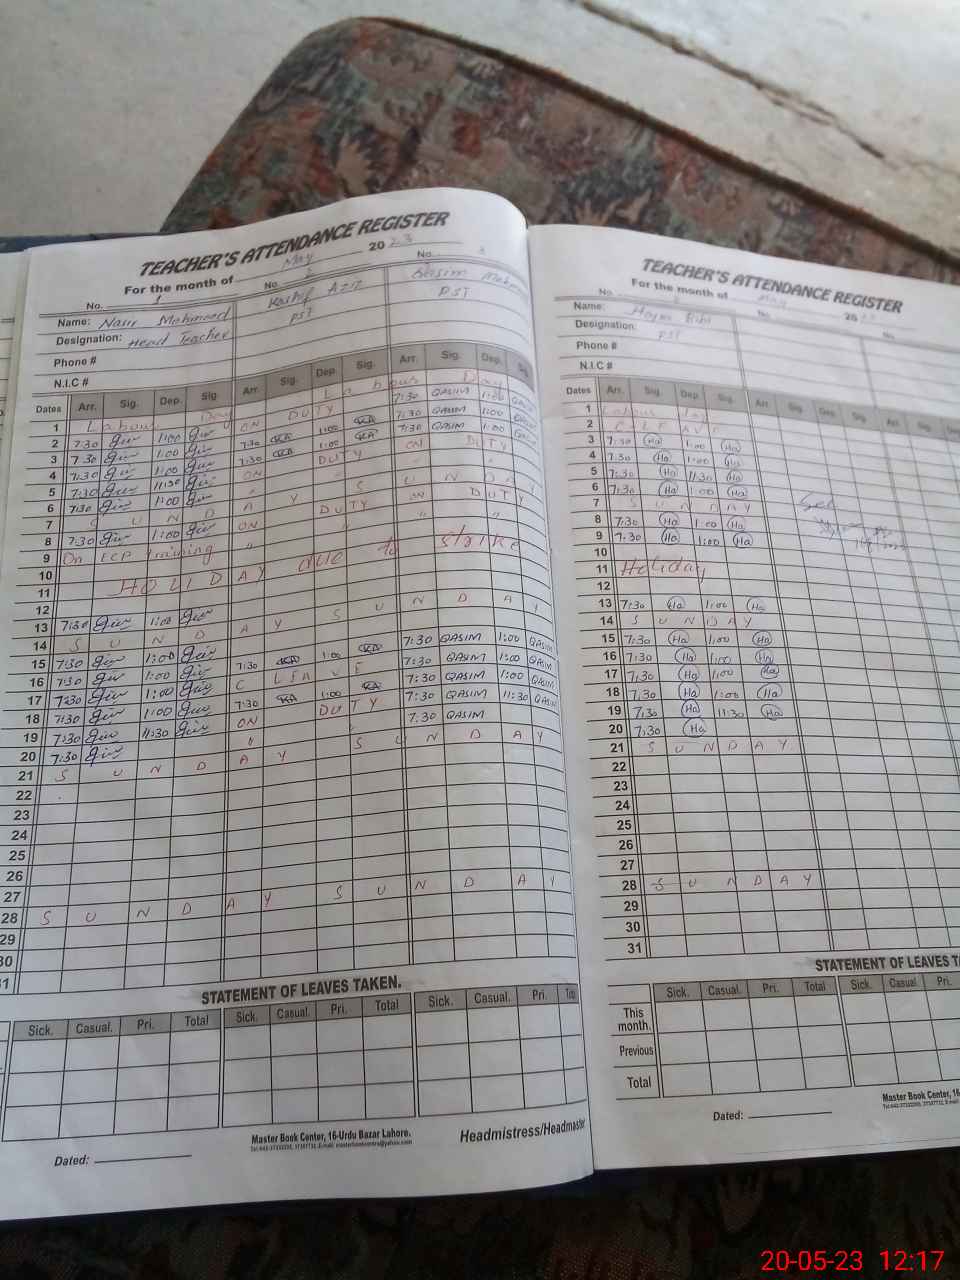 TEACHER'S ATTENDANCE REGISTER
For the month of May 2023
No. 1 No. 2 No. 3
Name: Nasir Mehmood Kashif Aziz Qasim
Designation: Head Teacher PST PST
Phone #
N.I.C #
Dates Arr. Sig. Dep. Sig. Arr. Sig. Dep. Sig. Arr. Sig. Dep. Sig.
1 Labour Day Labour Day
2 7:30 1:00 ON DUTY 7:30 QASIM 1:00 QASIM
3 7:30 1:00 7:30 KA 1:00 KA 7:30 QASIM 1:00 QASIM
4 7:30 1:00 7:30 KA 1:00 KA 7:30 QASIM 1:00 QASIM
5 7:30 11:30 ON DUTY ON DUTY
6 7:30 1:00 " "
7 SUNDAY SUNDAY
8 7:30 1:00 ON DUTY ON DUTY
9 On ECP training " " "
10
11 HOLIDAY due to strike
12
13 7:30 1:00
14 SUNDAY SUNDAY
15 7:30 1:00 7:30 KA 1:00 KA 7:30 QASIM 1:00 QASIM
16 7:30 1:00 C LEAVE 7:30 QASIM 1:00 QASIM
17 7:30 1:00 7:30 KA 1:00 KA 7:30 QASIM 1:00 QASIM
18 7:30 1:00 ON DUTY 7:30 QASIM 11:30 QASIM
19 7:30 11:30 7:30 QASIM
20 7:30
21 SUNDAY SUNDAY
22
23
24
25
26
27
28 SUNDAY SUNDAY
29
30
31
STATEMENT OF LEAVES TAKEN.
Sick. Casual. Pri. Total Sick. Casual. Pri. Total Sick. Casual. Pri.
Master Book Center, 16-Urdu Bazar Lahore.
Headmistress/Headmaster
Dated:
TEACHER'S ATTENDANCE REGISTER
For the month of May 2023
No. No. No.
Name: Bibi
Designation: PST
Phone #
N.I.C #
Dates Arr. Sig. Dep. Sig. Arr. Sig. Dep. Sig. Arr. Sig.
1 Labour Day
2 C LEAVE
3 7:30 Ha 1:00 Ha
4 7:30 Ha 1:00 Ha
5 7:30 Ha 11:30 Ha
6 7:30 Ha 1:00 Ha
7 SUNDAY
8 7:30 Ha 1:00 Ha
9 7:30 Ha 1:00 Ha
10
11 Holiday
12
13 7:30 Ha 1:00 Ha
14 SUNDAY
15 7:30 Ha 1:00 Ha
16 7:30 Ha 1:00 Ha
17 7:30 Ha 1:00 Ha
18 7:30 Ha 1:00 Ha
19 7:30 Ha 11:30 Ha
20 7:30 Ha
21 SUNDAY
22
23
24
25
26
27
28 SUNDAY
29
30
31
STATEMENT OF LEAVES
Sick. Casual. Pri. Total Sick. Casual. Pri.
This month.
Previous
Total
Master Book Center, 16
Dated:
20-05-23 12:17